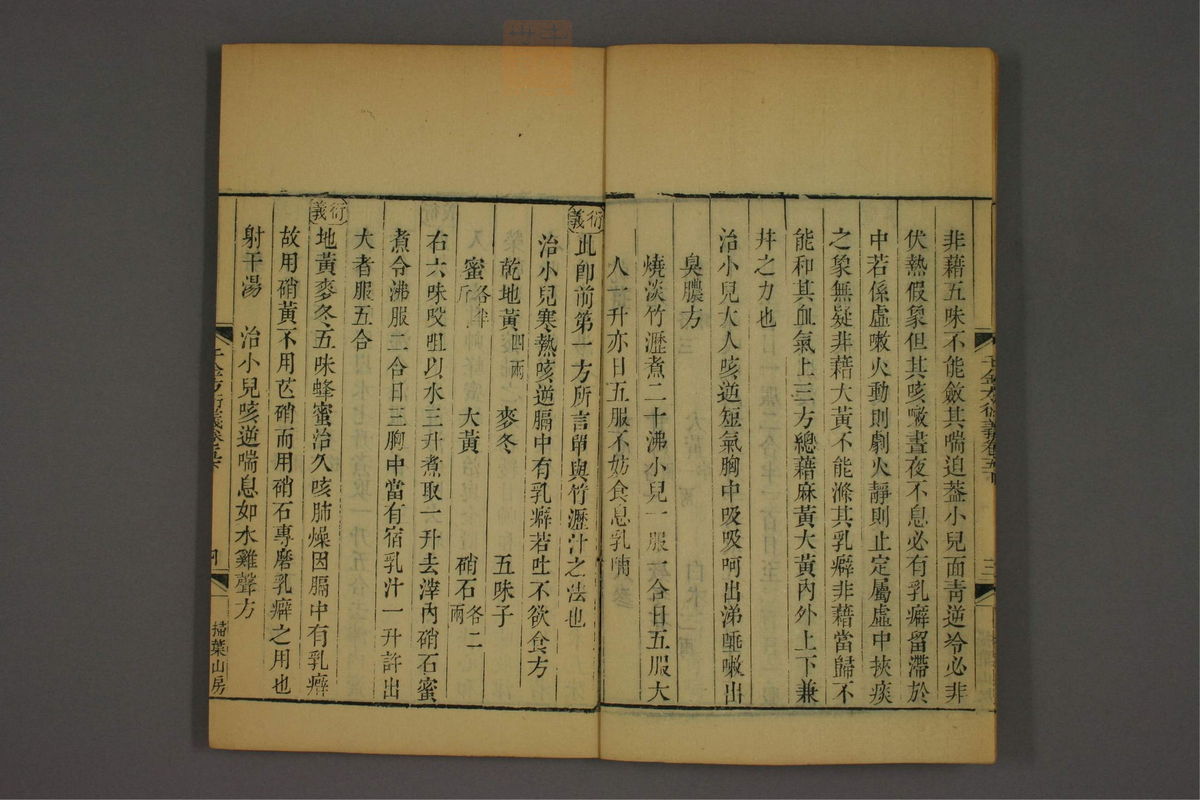 非藉五味不能斂其喘迫蓋小兒面青逆冷必非
伏熱假象但其咳嗽晝夜不息必有乳癖留滯於
中若係虛嗽火動則劇火靜則止定屬虛中挾痰
之象無疑非藉大黃不能滌其乳癖非藉當歸不
能和其血氣上三方總藉麻黃大黃內外上下兼
幷之力也
治小兒大人咳逆短氣胸中吸吸呵出涕唾嗽出
臭膿方
燒淡竹瀝煮二十沸小兒一服一合日五服大
人一升亦日五服不妨食息乳哺
衍義 此卽前第一方所言單與竹瀝汁之法也
治小兒寒熱咳逆膈中有乳癖若吐不欲食方
乾地黃四兩 麥冬 五味子
蜜各半斤 大黃 硝石各二兩
右六味㕮咀以水三升煮取一升去滓內硝石蜜
煮令沸服二合日三胸中當有宿乳汁一升許出
大者服五合
衍義 地黃麥冬五味蜂蜜治久咳肺燥因膈中有乳癖
故用硝黃不用芒硝而用硝石專磨乳癖之用也
射干湯 治小兒咳逆喘息如水雞聲方
掃葉山房